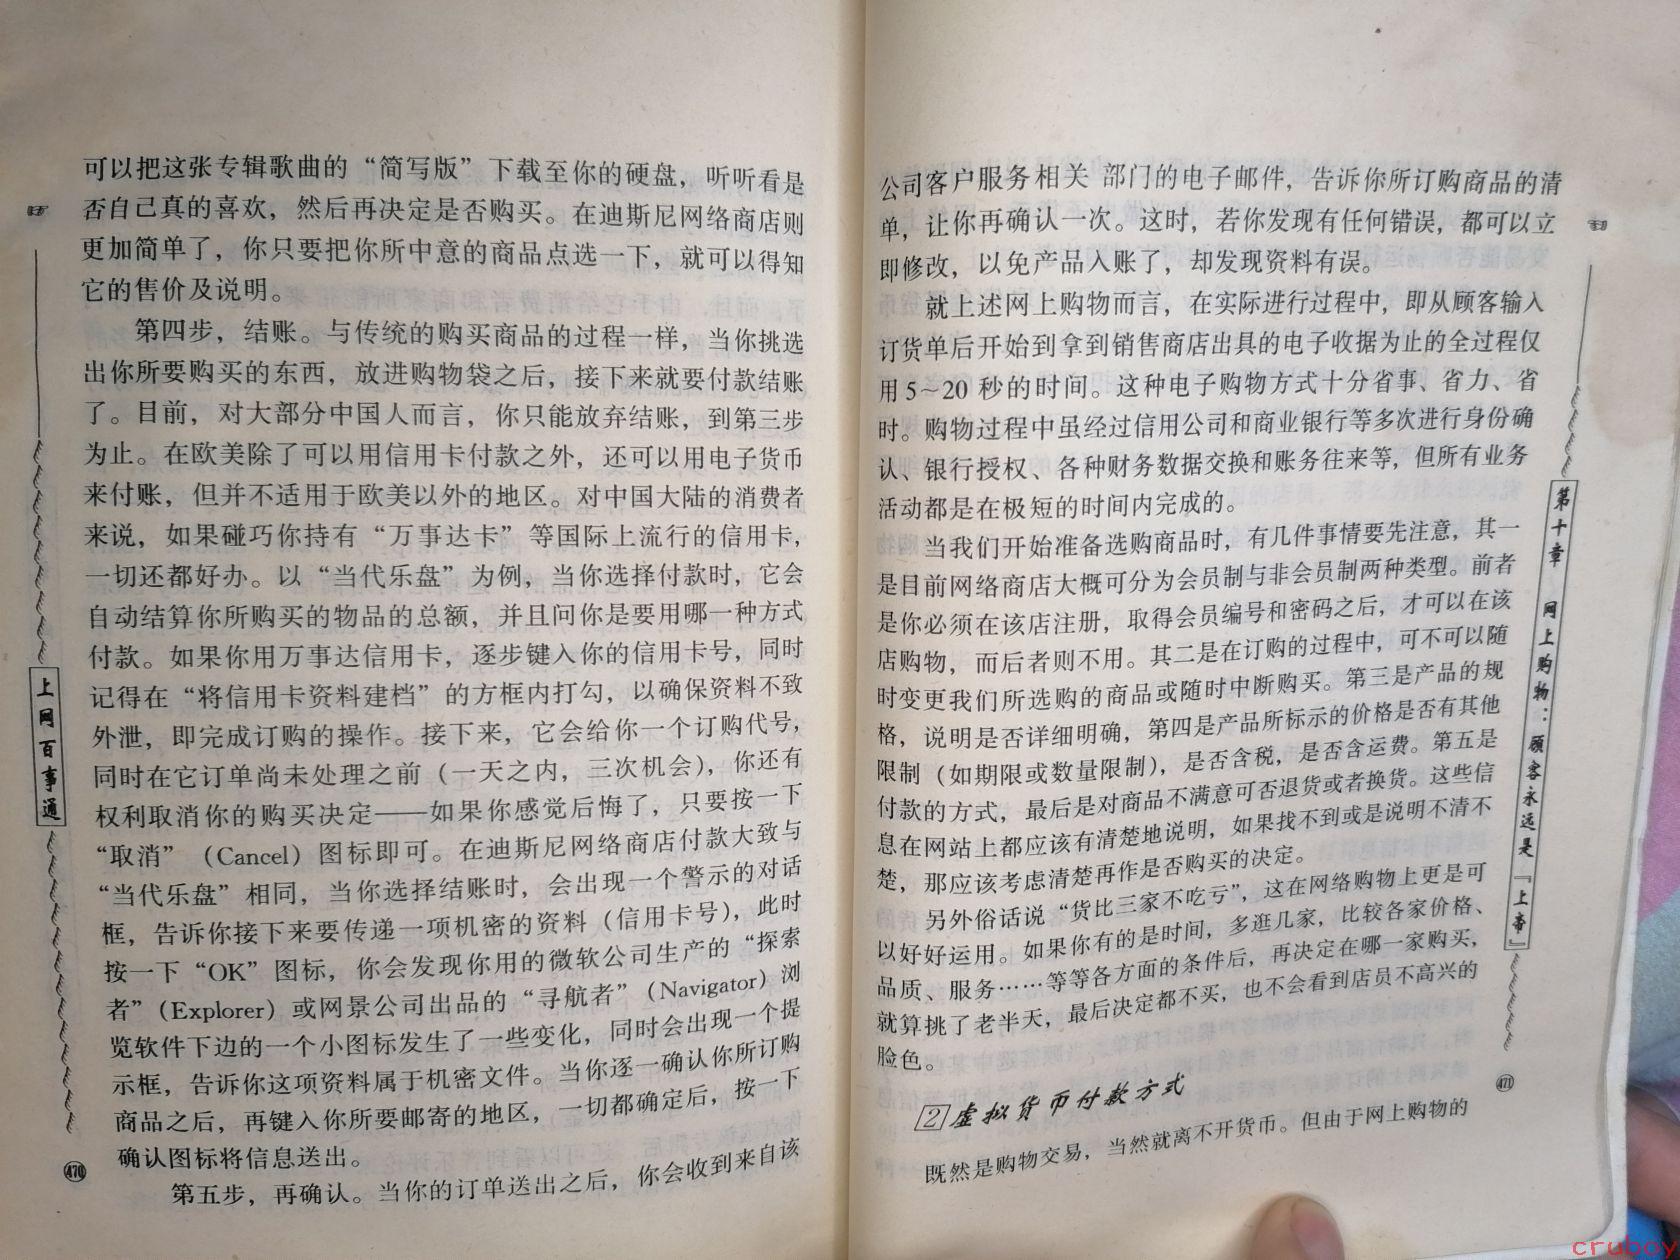 可以把这张专辑歌曲的“简写版”下载至你的硬盘，听听看是
否自己真的喜欢，然后再决定是否购买。在迪斯尼网络商店则
更加简单了，你只要把你所中意的商品点选一下，就可以得知
它的售价及说明。
第四步，结账。与传统的购买商品的过程一样，当你挑选
出你所要购买的东西，放进购物袋之后，接下来就要付款结账
了。目前，对大部分中国人而言，你只能放弃结账，到第三步
为止。在欧美除了可以用信用卡付款之外，还可以用电子货币
来付账，但并不适用于欧美以外的地区。对中国大陆的消费者
来说，如果碰巧你持有“万事达卡”等国际上流行的信用卡，
一切还都好办。以“当代乐盘”为例，当你选择付款时，它会
自动结算你所购买的物品的总额，并且问你是要用哪一种方式
付款。如果你用万事达信用卡，逐步键入你的信用卡号，同时
记得在“将信用卡资料建档”的方框内打勾，以确保资料不致
外泄，即完成订购的操作。接下来，它会给你一个订购代号，
同时在它订单尚未处理之前（一天之内，三次机会），你还有
权利取消你的购买决定——如果你感觉后悔了，只要按一下
“取消”（Cancel）图标即可。在迪斯尼网络商店付款大致与
“当代乐盘”相同，当你选择结账时，会出现一个警示的对话
框，告诉你接下来要传递一项机密的资料（信用卡号），此时
按一下“OK”图标，你会发现你用的微软公司生产的“探索
者”（Explorer）或网景公司出品的“寻航者”（Navigator）浏
览软件下边的一个小图标发生了一些变化，同时会出现一个提
示框，告诉你这项资料属于机密文件。当你逐一确认你所订购
商品之后，再键入你所要邮寄的地区，一切都确定后，按一下
确认图标将信息送出。
第五步，再确认。当你的订单送出之后，你会收到来自该
上网百事通
470
公司客户服务相关 部门的电子邮件，告诉你所订购商品的清
单，让你再确认一次。这时，若你发现有任何错误，都可以立
即修改，以免产品入账了，却发现资料有误。
就上述网上购物而言，在实际进行过程中，即从顾客输入
订货单后开始到拿到销售商店出具的电子收据为止的全过程仅
用5～20 秒的时间。这种电子购物方式十分省事、省力、省
时。购物过程中虽经过信用公司和商业银行等多次进行身份确
认、银行授权、各种财务数据交换和账务往来等，但所有业务
活动都是在极短的时间内完成的。
当我们开始准备选购商品时，有几件事情要先注意，其一
是目前网络商店大概可分为会员制与非会员制两种类型。前者
是你必须在该店注册，取得会员编号和密码之后，才可以在该
店购物，而后者则不用。其二是在订购的过程中，可不可以随
时变更我们所选购的商品或随时中断购买。第三是产品的规
格，说明是否详细明确，第四是产品所标示的价格是否有其他
限制（如期限或数量限制），是否含税，是否含运费。第五是
付款的方式，最后是对商品不满意可否退货或者换货。这些信
息在网站上都应该有清楚地说明，如果找不到或是说明不清不
楚，那应该考虑清楚再作是否购买的决定。
另外俗话说“货比三家不吃亏”，这在网络购物上更是可
以好好运用。如果你有的是时间，多逛几家，比较各家价格、
品质、服务……等等各方面的条件后，再决定在哪一家购买，
就算挑了老半天，最后决定都不买，也不会看到店员不高兴的
脸色。
2 虚拟货币付款方式
既然是购物交易，当然就离不开货币。但由于网上购物的
第十章 网上购物：顾客永远是『上帝』
471
cruboy